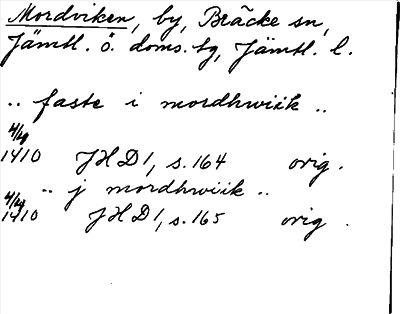 Mordviken, by, Bräcke sn,
Jämtl. ö. doms. tg, Jämtl. l.
.. faste i mordhwiik ..
1410 JHD 1, s. 164 orig.
.. j mordhwiik ..
1410 JHD 1, s. 165 orig.